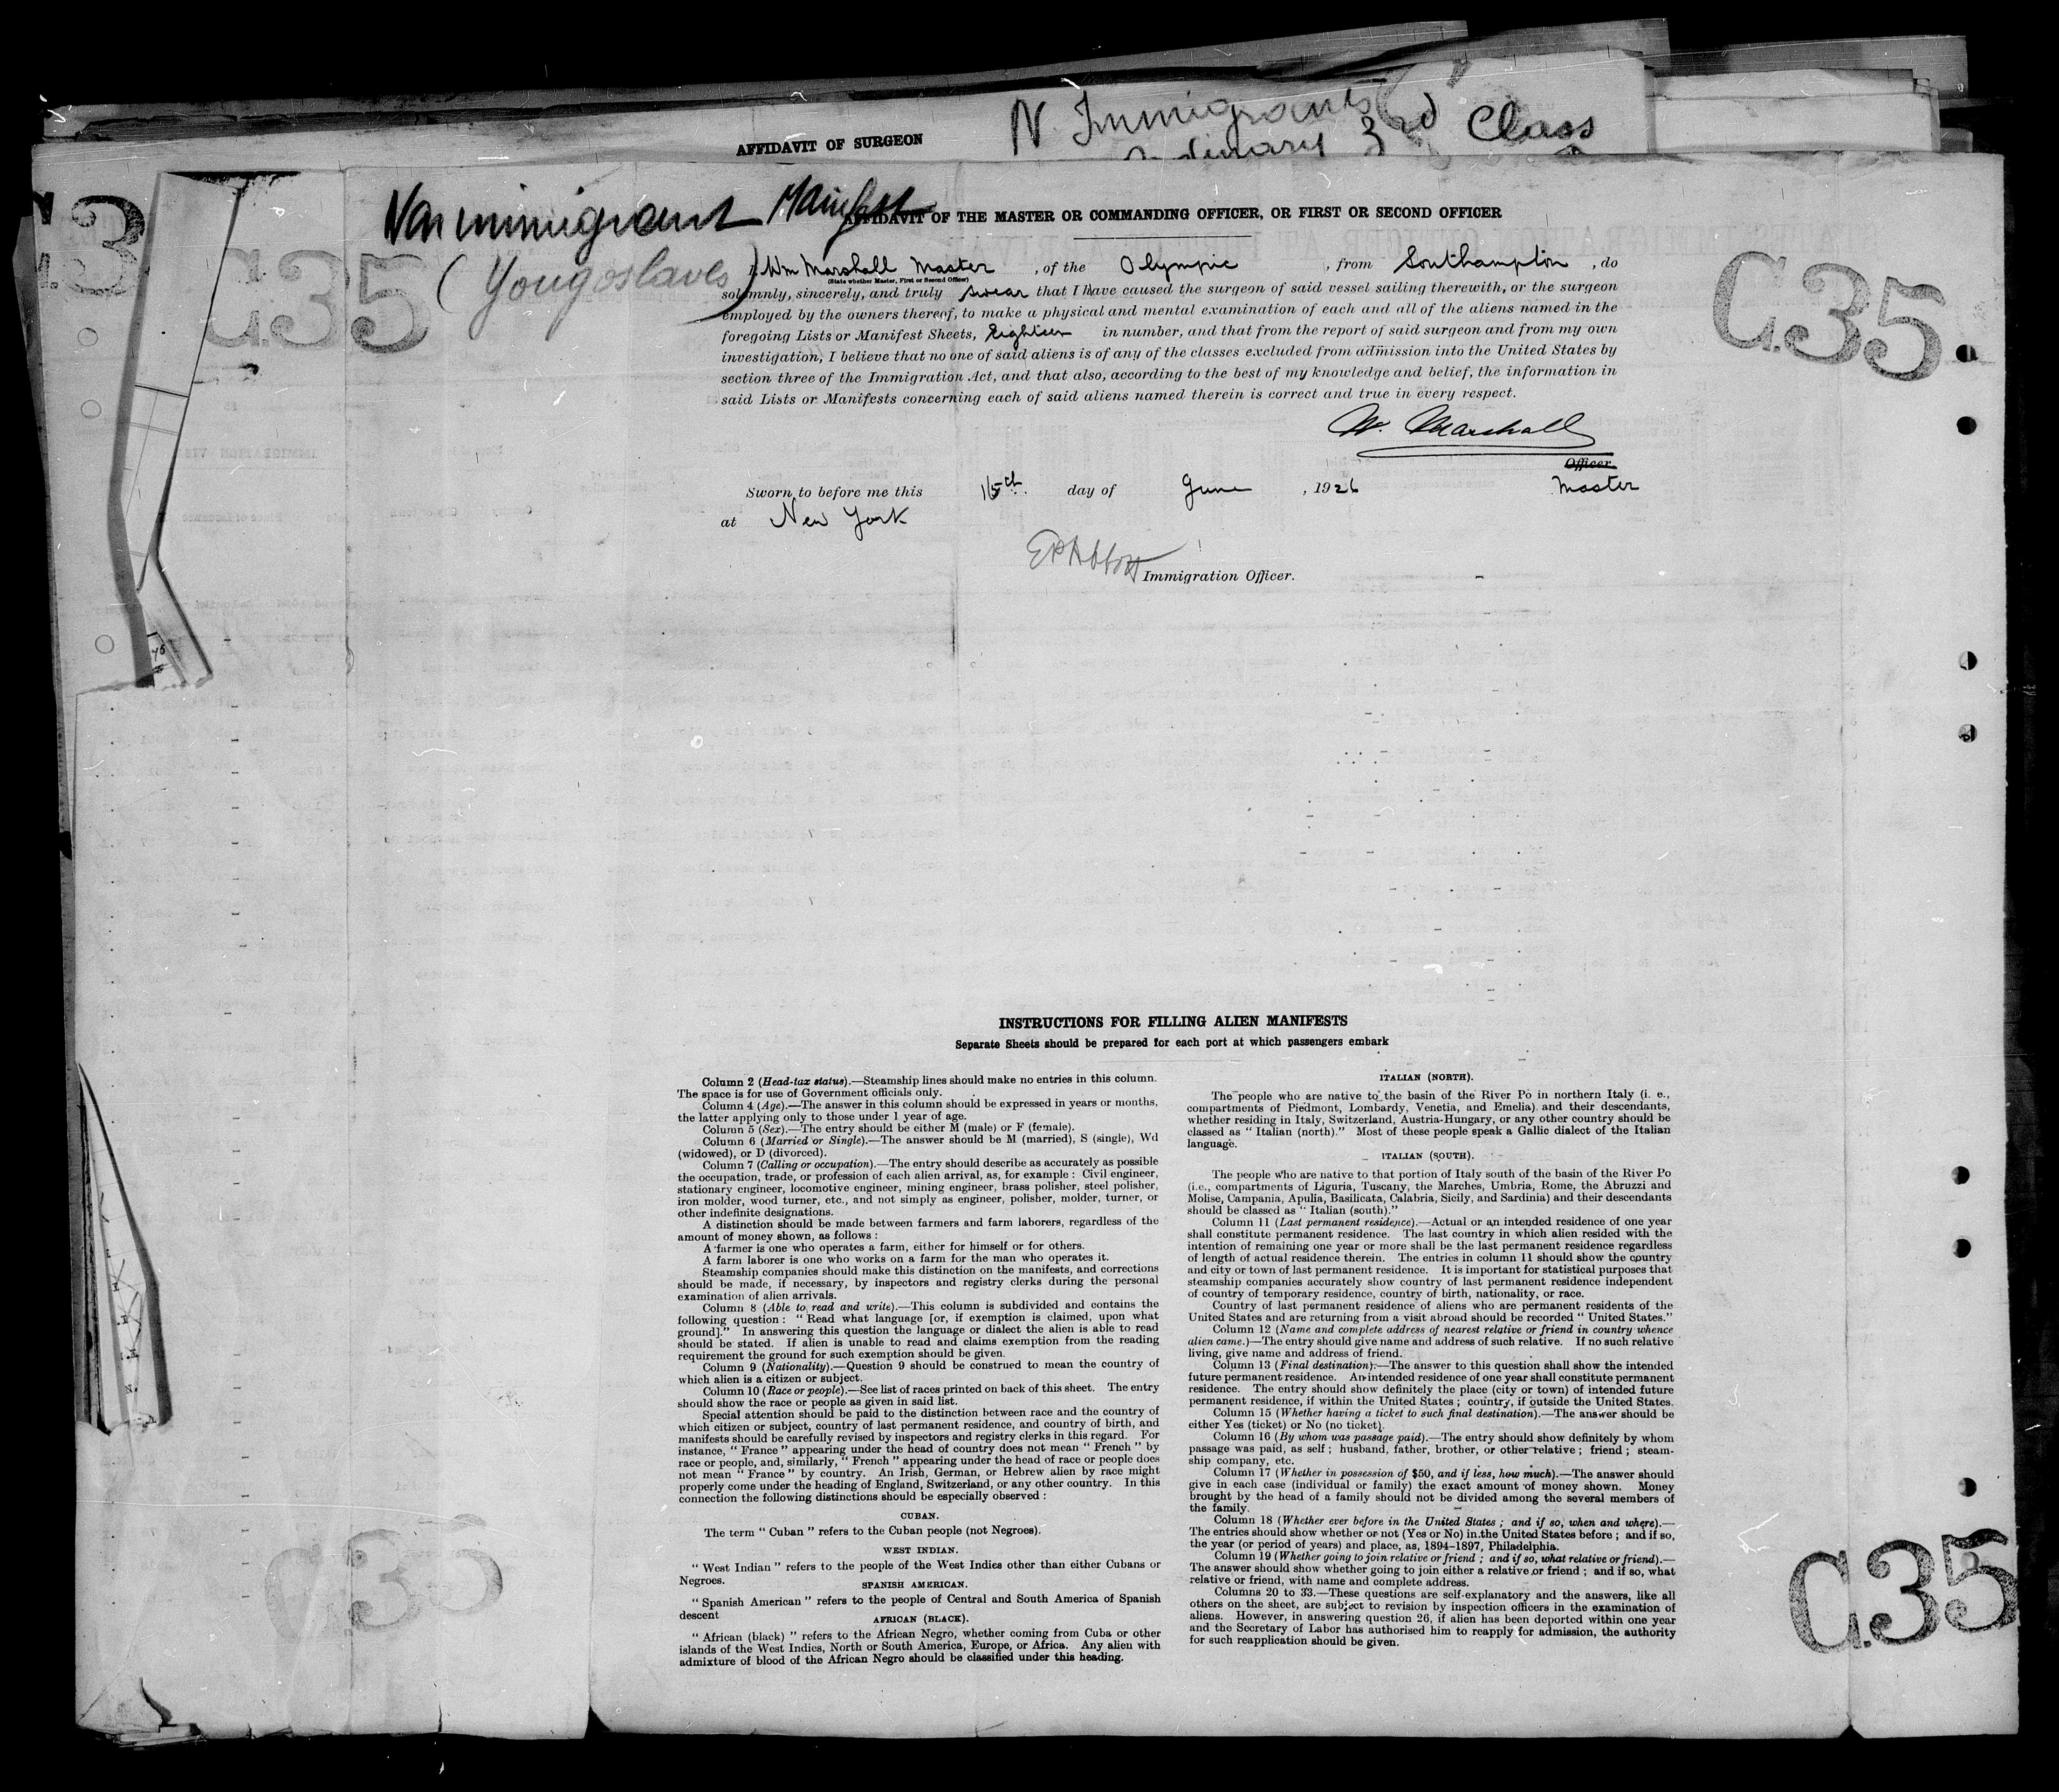 N. Immigrants
Ordinary 3rd Class
AFFIDAVIT OF SURGEON
Non immigrant Manifest
(Yougoslaves)
C.35
C.35
AFFIDAVIT OF THE MASTER OR COMMANDING OFFICER, OR FIRST OR SECOND OFFICER
I, Wm Marshall Master, of the Olympic, from Southampton, do
(State whether Master, First or Second Officer)
solemnly, sincerely, and truly swear that I have caused the surgeon of said vessel sailing therewith, or the surgeon
employed by the owners thereof, to make a physical and mental examination of each and all of the aliens named in the
foregoing Lists or Manifest Sheets, Eighteen in number, and that from the report of said surgeon and from my own
investigation, I believe that no one of said aliens is of any of the classes excluded from admission into the United States by
section three of the Immigration Act, and that also, according to the best of my knowledge and belief, the information in
said Lists or Manifests concerning each of said aliens named therein is correct and true in every respect.
W. Marshall
Officer
Master
Sworn to before me this day of June, 1926
at New York
Immigration Officer.
INSTRUCTIONS FOR FILLING ALIEN MANIFESTS
Separate Sheets should be prepared for each port at which passengers embark
Column 2 (Head-tax status).—Steamship lines should make no entries in this column.
The space is for use of Government officials only.
Column 4 (Age).—The answer in this column should be expressed in years or months,
the latter applying only to those under 1 year of age.
Column 5 (Sex).—The entry should be either M (male) or F (female).
Column 6 (Married or Single).—The answer should be M (married), S (single), Wd
(widowed), or D (divorced).
Column 7 (Calling or occupation).—The entry should describe as accurately as possible
the occupation, trade, or profession of each alien arrival, as, for example : Civil engineer,
stationary engineer, locomotive engineer, mining engineer, brass polisher, steel polisher,
iron molder, wood turner, etc., and not simply as engineer, polisher, molder, turner, or
other indefinite designations.
A distinction should be made between farmers and farm laborers, regardless of the
amount of money shown, as follows :
A farmer is one who operates a farm, either for himself or for others.
A farm laborer is one who works on a farm for the man who operates it.
Steamship companies should make this distinction on the manifests, and corrections
should be made, if necessary, by inspectors and registry clerks during the personal
examination of alien arrivals.
Column 8 (Able to read and write).—This column is subdivided and contains the
following question : "Read what language [or, if exemption is claimed, upon what
ground]." In answering this question the language or dialect the alien is able to read
should be stated. If alien is unable to read and claims exemption from the reading
requirement the ground for such exemption should be given.
Column 9 (Nationality).—Question 9 should be construed to mean the country of
which alien is a citizen or subject.
Column 10 (Race or people).—See list of races printed on back of this sheet. The entry
should show the race or people as given in said list.
Special attention should be paid to the distinction between race and the country of
which citizen or subject, country of last permanent residence, and country of birth, and
manifests should be carefully revised by inspectors and registry clerks in this regard. For
instance, "France" appearing under the head of country does not mean "French" by
race or people, and, similarly, "French" appearing under the head of race or people does
not mean "France" by country. An Irish, German, or Hebrew alien by race might
properly come under the heading of England, Switzerland, or any other country. In this
connection the following distinctions should be especially observed :
CUBAN.
The term "Cuban" refers to the Cuban people (not Negroes).
WEST INDIAN.
"West Indian" refers to the people of the West Indies other than either Cubans or
Negroes.
SPANISH AMERICAN.
"Spanish American" refers to the people of Central and South America of Spanish
descent
AFRICAN (BLACK).
"African (black)" refers to the African Negro, whether coming from Cuba or other
islands of the West Indies, North or South America, Europe, or Africa. Any alien with
admixture of blood of the African Negro should be classified under this heading.
ITALIAN (NORTH).
The people who are native to the basin of the River Po in northern Italy (i. e.,
compartments of Piedmont, Lombardy, Venetia, and Emelia) and their descendants,
whether residing in Italy, Switzerland, Austria-Hungary, or any other country should be
classed as "Italian (north)." Most of these people speak a Gallic dialect of the Italian
language.
ITALIAN (SOUTH).
The people who are native to that portion of Italy south of the basin of the River Po
(i.e., compartments of Liguria, Tuscany, the Marches, Umbria, Rome, the Abruzzi and
Molise, Campania, Apulia, Basilicata, Calabria, Sicily, and Sardinia) and their descendants
should be classed as "Italian (south)."
Column 11 (Last permanent residence).—Actual or an intended residence of one year
shall constitute permanent residence. The last country in which alien resided with the
intention of remaining one year or more shall be the last permanent residence regardless
of length of actual residence therein. The entries in column 11 should show the country
and city or town of last permanent residence. It is important for statistical purposes that
steamship companies accurately show country of last permanent residence independent
of country of temporary residence, country of birth, nationality, or race.
Country of last permanent residence of aliens who are permanent residents of the
United States and are returning from a visit abroad should be recorded "United States."
Column 12 (Name and complete address of nearest relative or friend in country whence
alien came.)—The entry should give name and address of such relative. If no such relative
living, give name and address of friend.
Column 13 (Final destination).—The answer to this question shall show the intended
future permanent residence. An intended residence of one year shall constitute permanent
residence. The entry should show definitely the place (city or town) of intended future
permanent residence, if within the United States ; country, if outside the United States.
Column 15 (Whether having a ticket to such final destination).—The answer should be
either Yes (ticket) or No (no ticket).
Column 16 (By whom was passage paid).—The entry should show definitely by whom
passage was paid, as self ; husband, father, brother, or other relative ; friend ; steam-
ship company, etc.
Column 17 (Whether in possession of $50, and if less, how much).—The answer should
give in each case (individual or family) the exact amount of money shown. Money
brought by the head of a family should not be divided among the several members of
the family.
Column 18 (Whether ever before in the United States ; and if so, when and where).—
The entries should show whether or not (Yes or No) in the United States before ; and if so,
the year (or period of years) and place, as, 1894–1897, Philadelphia.
Column 19 (Whether going to join relative or friend ; and if so, what relative or friend).—
The answer should show whether going to join either a relative or friend ; and if so, what
relative or friend, with name and complete address.
Columns 20 to 33.—These questions are self-explanatory and the answers, like all
others on the sheet, are subject to revision by inspection officers in the examination of
aliens. However, in answering question 26, if alien has been deported within one year
and the Secretary of Labor has authorised him to reapply for admission, the authority
for such reapplication should be given.
C.35